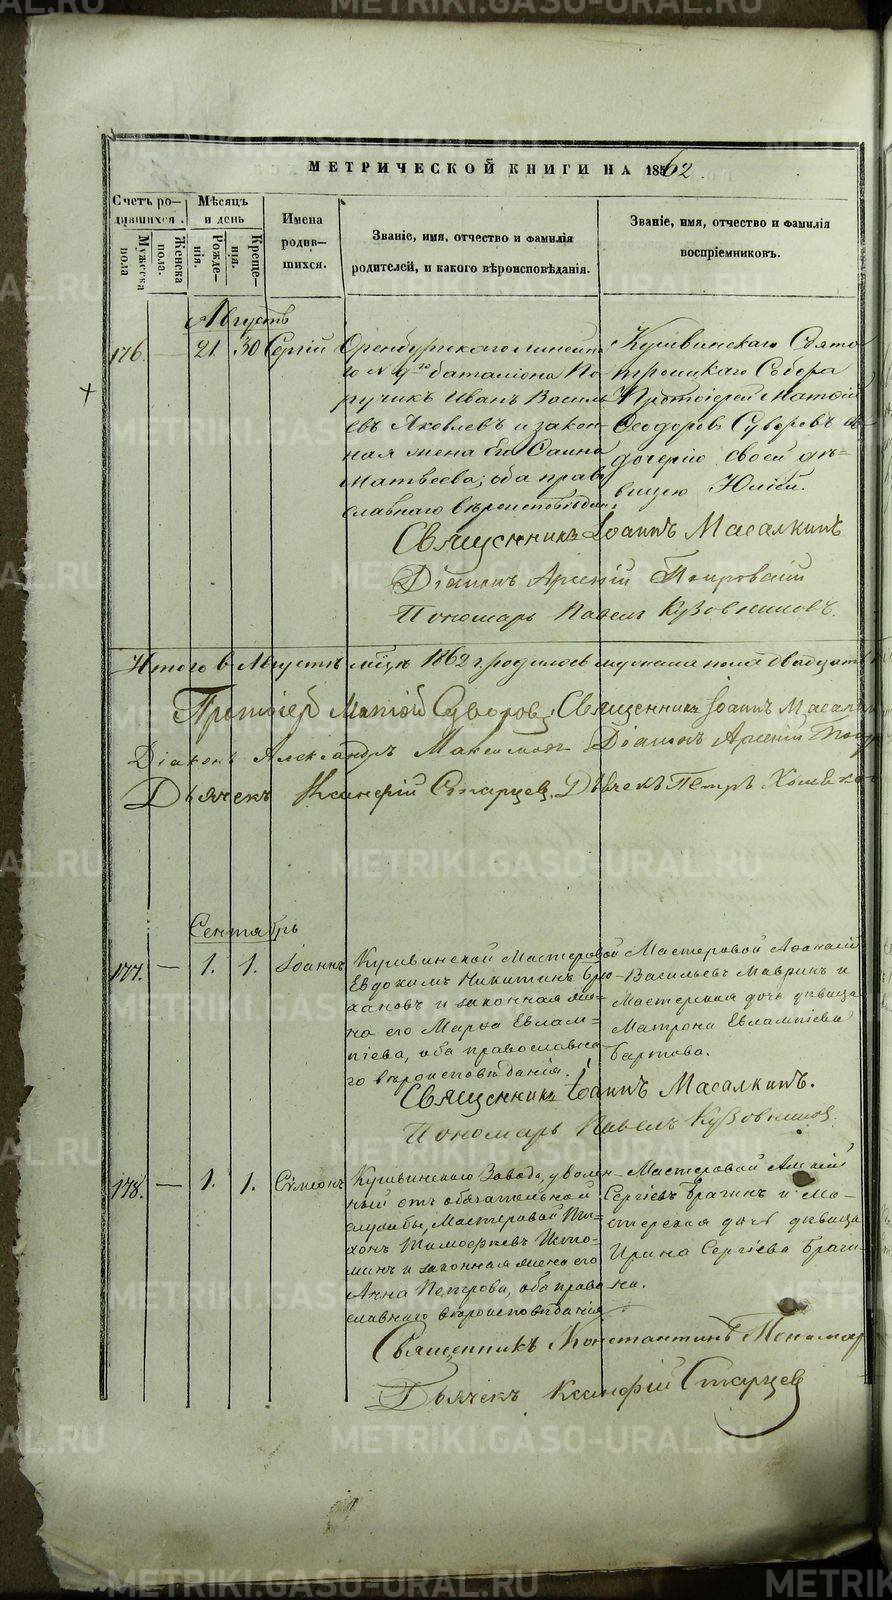 МЕТРИЧЕСКОЙ КНИГИ НА 1862.
Счетъ ро-
дившихся.
Мужеска
пола
Женска
пола.
Мѣсяцъ
и день
Рожде-
нія.
Креще-
нія.
Имена
родив-
шихся.
Званіе, имя, отчество и фамилія
родителей, и какого вѣроисповѣданія.
Званіе, имя, отчество и фамилія
воспріемниковъ.
Августъ
176. — 21 30 Сергій
Оренбургскаго линейна
го N 4го баталіона По
ручикъ Иванъ Василь
евъ Яковлевъ и закон-
ная жена его
Матвѣева; оба право
славнаго вѣроисповѣдан.
Кушвинскаго Свято
троицкаго Собора
Протоіерей Матѳій
Ѳеодоровъ Суворовъ съ
дочерію своей дѣ-
вицею Юліей.
Священникъ Іоаннъ Масалкинъ
Діаконъ Арсеній
Пономарь Павелъ Кузовниковъ.
Итого въ Августѣ мѣсцѣ 1862 г. родилось мужеска пола двадцать
Протоіерей Матѳій Суворовъ, Священникъ Іоаннъ Масалкин
Діаконъ Александръ Максимовъ Діаконъ Арсеній
Дьячекъ Ксенофій Старцевъ. Дьячекъ Петръ
Сентябрь
177. — 1. 1. Іоаннъ
Кушвинской Мастеровой
Евдокимъ Никитинъ Брю
хановъ и законная же-
на его Марѳа Евлам-
піева, оба православна
го вѣроисповѣданія.
Мастеровой Аѳанасій
Васильевъ Мавринъ и
Мастерская дочь дѣвица
Матрона Евлампіева
Бартова.
Священникъ Іоаннъ Масалкинъ.
Пономарь Павелъ Кузовниковъ
178. — 1. 1. Сѵмеонъ
Кушвинскаго Завода, уволен
ный отъ обязательной
службы, Мастеровой Ти-
хонъ Тимоѳеевъ Исто-
минъ и законная жена его
Анна Петрова, оба право
славнаго вѣроисповѣданія
Мастеровой Алексій
Сергіевъ Брагинъ и Ма-
стерская дочь дѣвица
Ирина Сергіева Браги-
на.
Священникъ Константинъ Пономар
Дьячекъ Ксенофій Старцев
METRIKI.GASO-URAL.RU